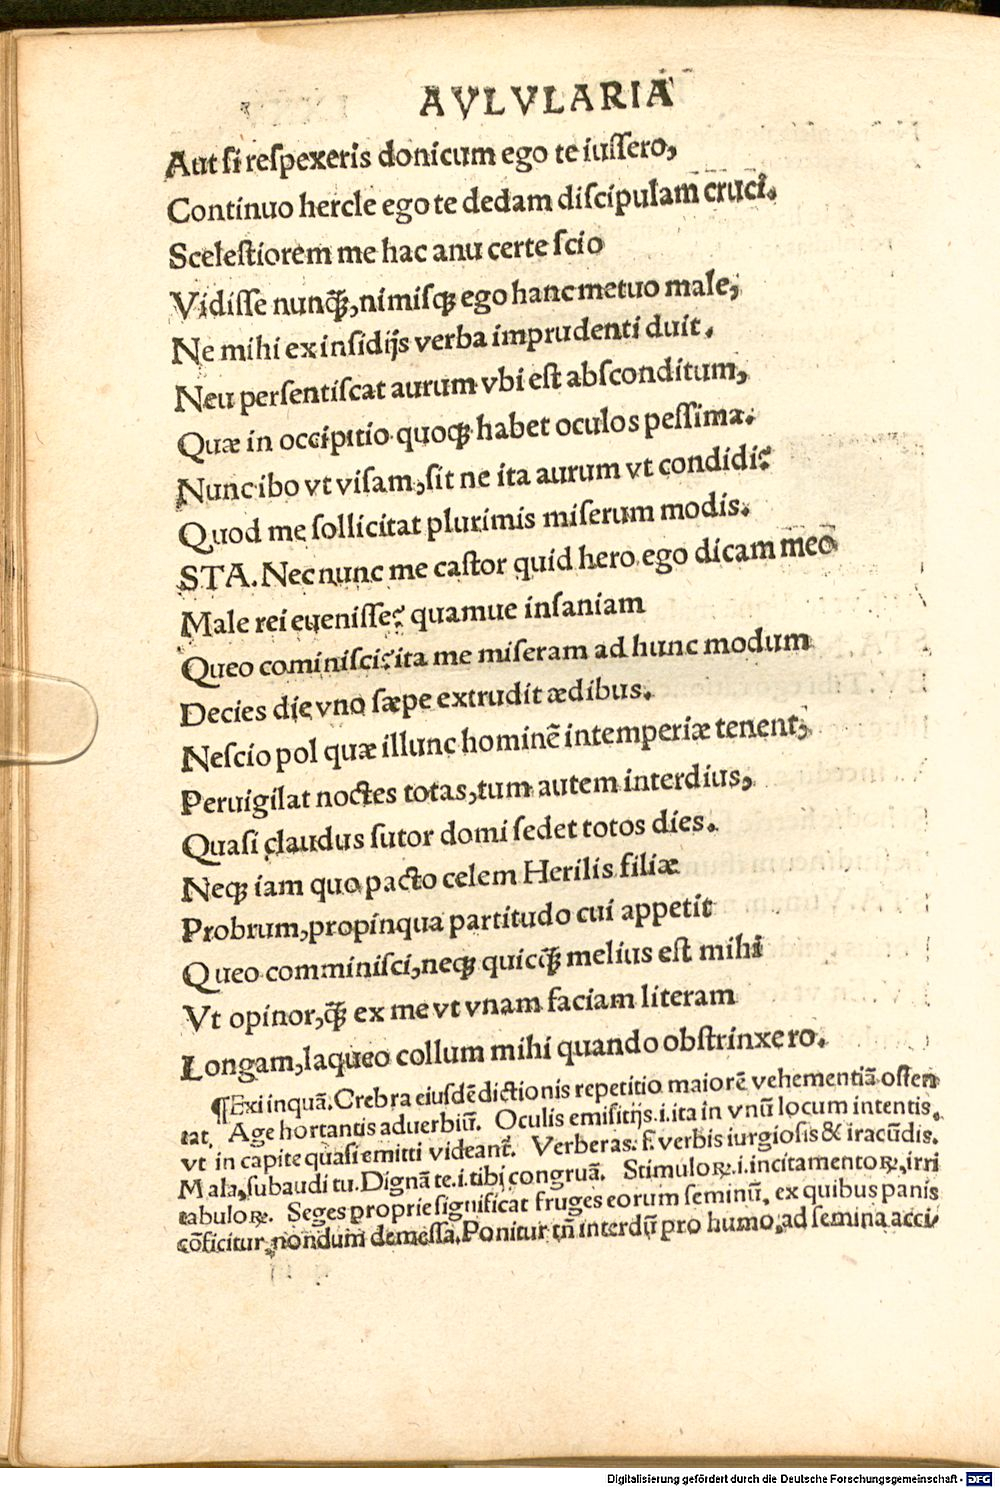 AVLVLARIA
Aut ſi reſpexeris donicum ego te iuſſero,
Continuo hercle ego te dedam diſcipulam cruci.
Sceleſtiorem me hac anu certe ſcio
Vidiſſe nunꝙ̃, nimiſqꝫ ego hanc metuo male,
Ne mihi ex inſidijs verba imprudenti duit.
Neu perſentiſcat aurum vbi eſt abſconditum,
Quæ in occipitio quoqꝫ habet oculos peſſima.
Nunc ibo vt viſam, ſit ne ita aurum vt condidi?
Quod me ſollicitat plurimis miſerum modis.
STA. Nec nunc me caſtor quid hero ego dicam meo
Male rei eueniſſe? quamue inſaniam
Queo cominiſci? ita me miſeram ad hunc modum
Decies die vno ſæpe extrudit ædibus.
Neſcio pol quæ illunc hominē intemperiæ tenent,
Peruigilat noctes totas, tum autem interdius,
Quaſi claudus ſutor domi ſedet totos dies.
Neqꝫ iam quo pacto celem Herilis filiæ
Probrum, propinqua partitudo cui appetit
Queo comminiſci, neqꝫ quicꝙ̃ melius eſt mihi
Vt opinor, ꝙ̃ ex me vt vnam faciam literam
Longam, laqueo collum mihi quando obſtrinxero.
¶Exi inquā. Crebra eiuſdē dictionis repetitio maiorē vehementiā oſten
tat. Age hortantis aduerbiū. Oculis emiſitijs .i. ita in vnū locum intentis,
vt in capite quaſi emitti videant̃. Verberas: ſ. verbis iurgioſis & iracūdis.
Mala, ſubaudi tu. Dignā te .i. tibi congruā. Stimuloꝝ .i. incitamentoꝝ, irri
tabuloꝝ. Seges proprie ſignificat fruges eorum ſeminū, ex quibus panis
cōficitur, nondum demeſſa. Ponitur tñ interdū pro humo, ad ſemina acci/
Digitalisierung gefördert durch die Deutsche Forschungsgemeinschaft - DFG